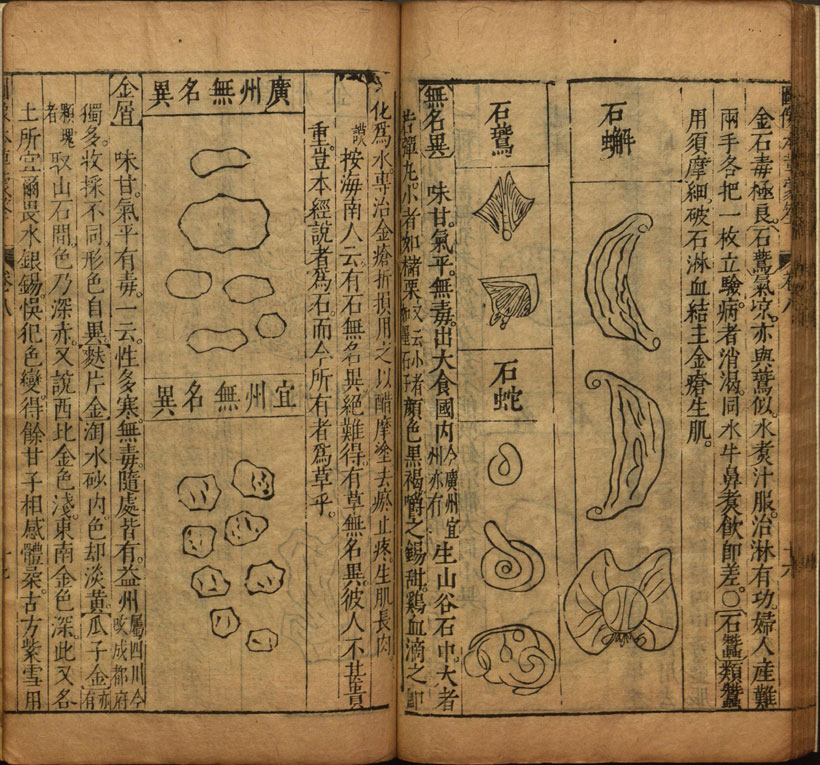 圖像本草蒙筌
卷八
金石毒極良。石鷰氣涼。亦與鷰似。水煑汁服。治淋有功。婦人產難
兩手各把一枚立驗。病者消渴。同水牛鼻煑飲卽差。○石蠶類蠶
用須摩細。破石淋血結。主金瘡生肌。
石蠏
石鷰
石蛇
無名異
味甘。氣平。無毒。出大食國內今廣州宜州亦有生山谷石中。大者
若彈丸。小者如櫧栗又云小者如石子顏色黑褐。嚼之錫甜。鷄血滴之卽
十六
化爲水。專治金瘡折損。用之以醋摩塗。去瘀止疼。生肌長肉
按海南人云。有石無名異絕難得。有草無名異。彼人不甚貴
重。豈本經說者爲石。而今所有者爲草乎。
廣州無名異
宜州無名異
金屑
味甘。氣平。有毒。一云。性多寒。無毒。隨處皆有。益州屬四川今改成都府
獨多。收採不同。形色自異。麩片金淘水砂內。色却淡黃。瓜子金亦有
顆塊者取山石間。色乃深赤。又說西北金色淺。東南金色深。此又各
土所宜爾。畏水銀錫。悞犯色變。得餘甘子相感體柔。古方紫雪用
卷八